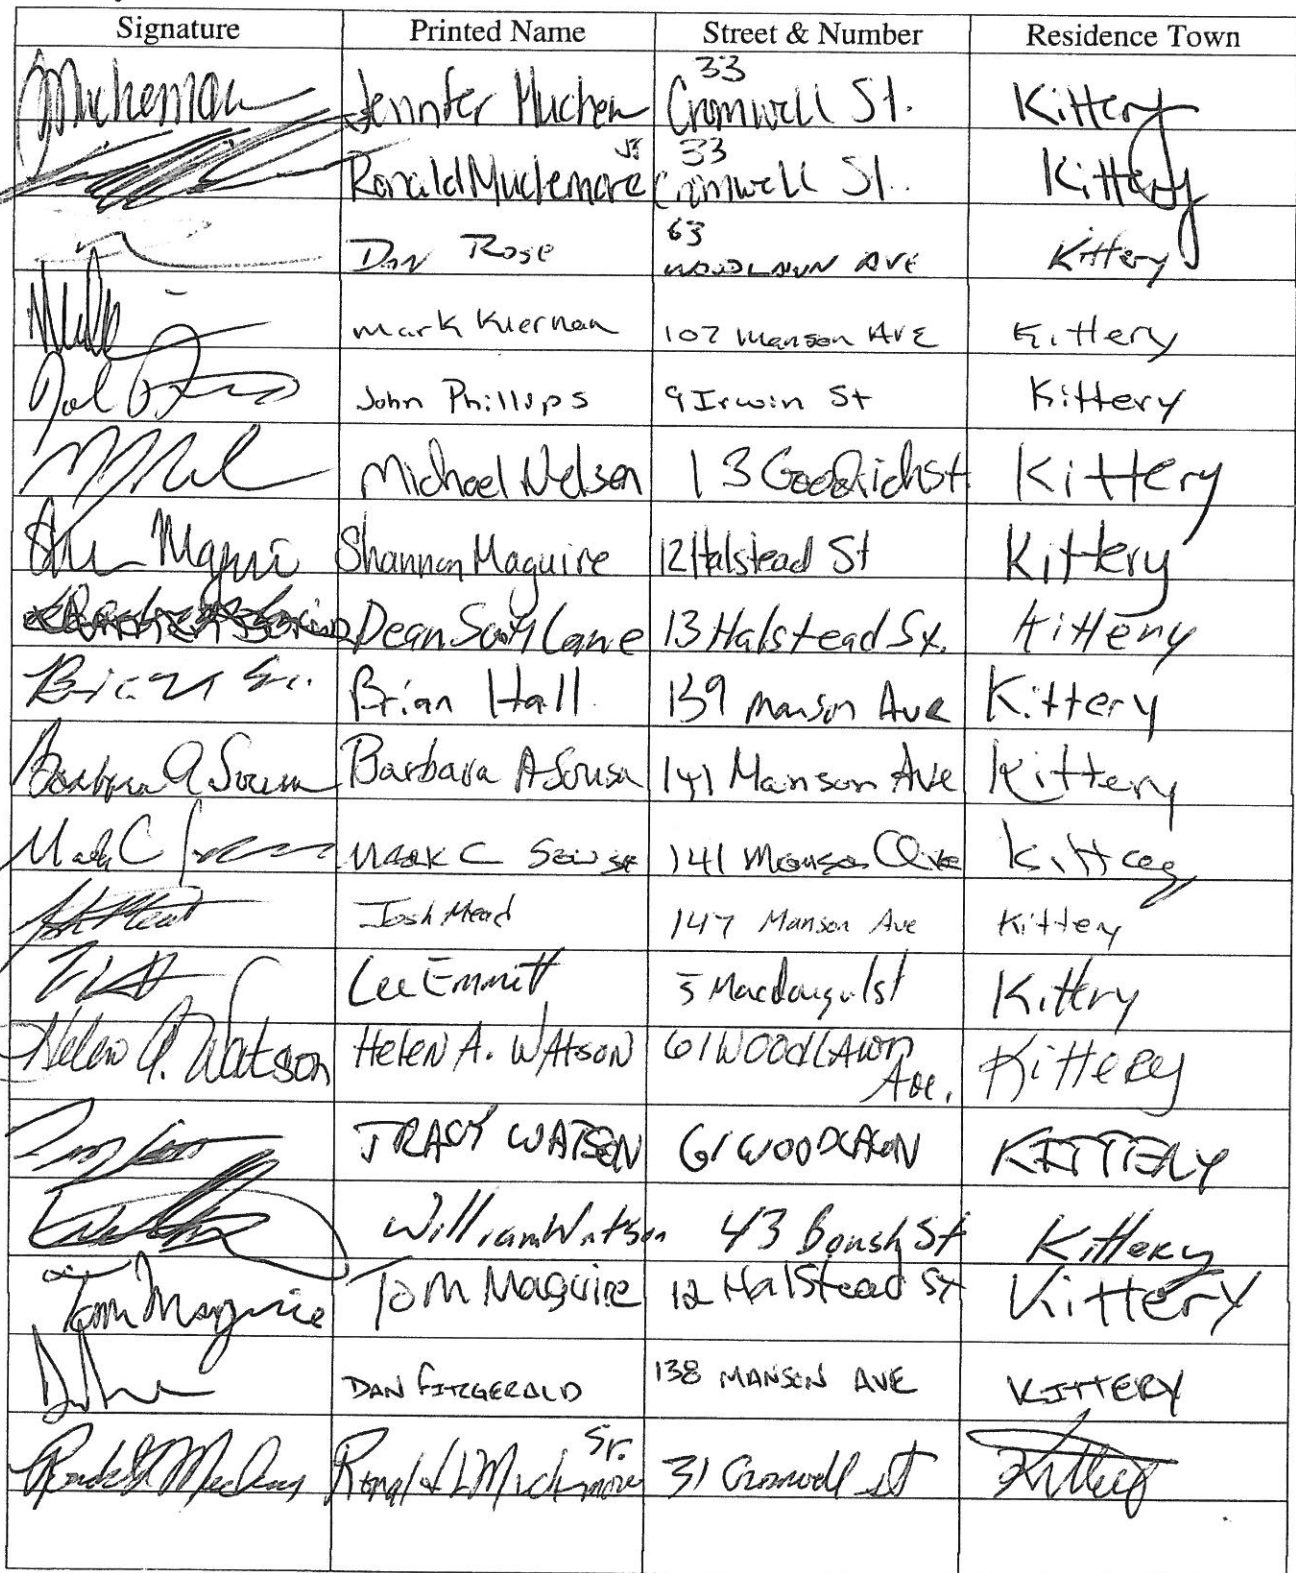 Signature Printed Name Street & Number Residence Town
Jennifer Muchem 33 Cromwell St. Kittery
Ronald Muckemore Jr 33 Cromwell St. Kittery
Dan Rose 63 WOODLAWN AVE Kittery
Mark Kiernan 107 Manson AVE Kittery
John Phillips 9 Irwin St Kittery
Michael Nelson 13 Goodrich st. Kittery
Shannon Maguire 12 Halstead St Kittery
Dean Scott Lane 13 Halstead St. Kittery
Brian Hall 139 Manson Ave Kittery
Barbara A Sousa Barbara A Sousa 141 Manson Ave Kittery
Mark C Mark C Sousa 141 Manson Ave Kittery
Josh Mead Josh Mead 147 Manson Ave Kittery
Lee Emmitt 5 Macdougal st Kittry
Helen A. Watson HELEN A. WATSON 61 WOODLAWN Ave. Kittery
TRACY WATSON 61 WOODLAWN KITTERY
William Watson 43 St Kittery
Tom Maguire Tom Maguire 12 Halstead St Kittery
DAN FITZGERALD 138 MANSON AVE KITTERY
Ronald L Muckemore Sr. 31 Cromwell St Kittery